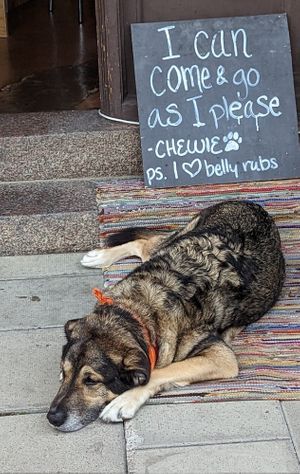 I can
come & go
as I please
- CHEWIE 🐾
ps. I ♡ belly rubs